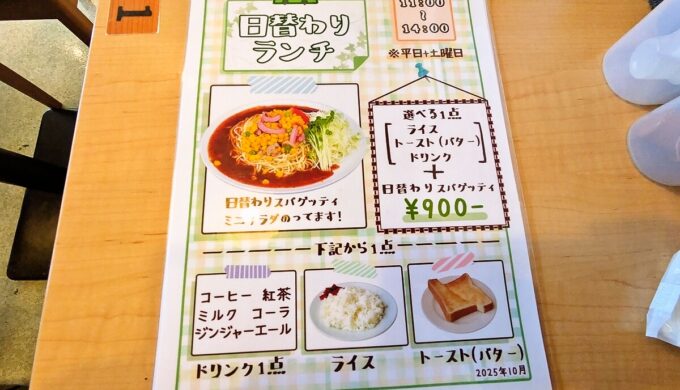 1
日替わり
ランチ
11:00
~
14:00
※平日+土曜日
日替わりスパゲッティ
ミニサラダのってます!
選べる1点
ライス
トースト(バター)
ドリンク
+
日替わりスパゲッティ
¥900-
下記から1点
コーヒー 紅茶
ミルク コーラ
ジンジャーエール
ドリンク1点
ライス
トースト(バター)
2025年10月